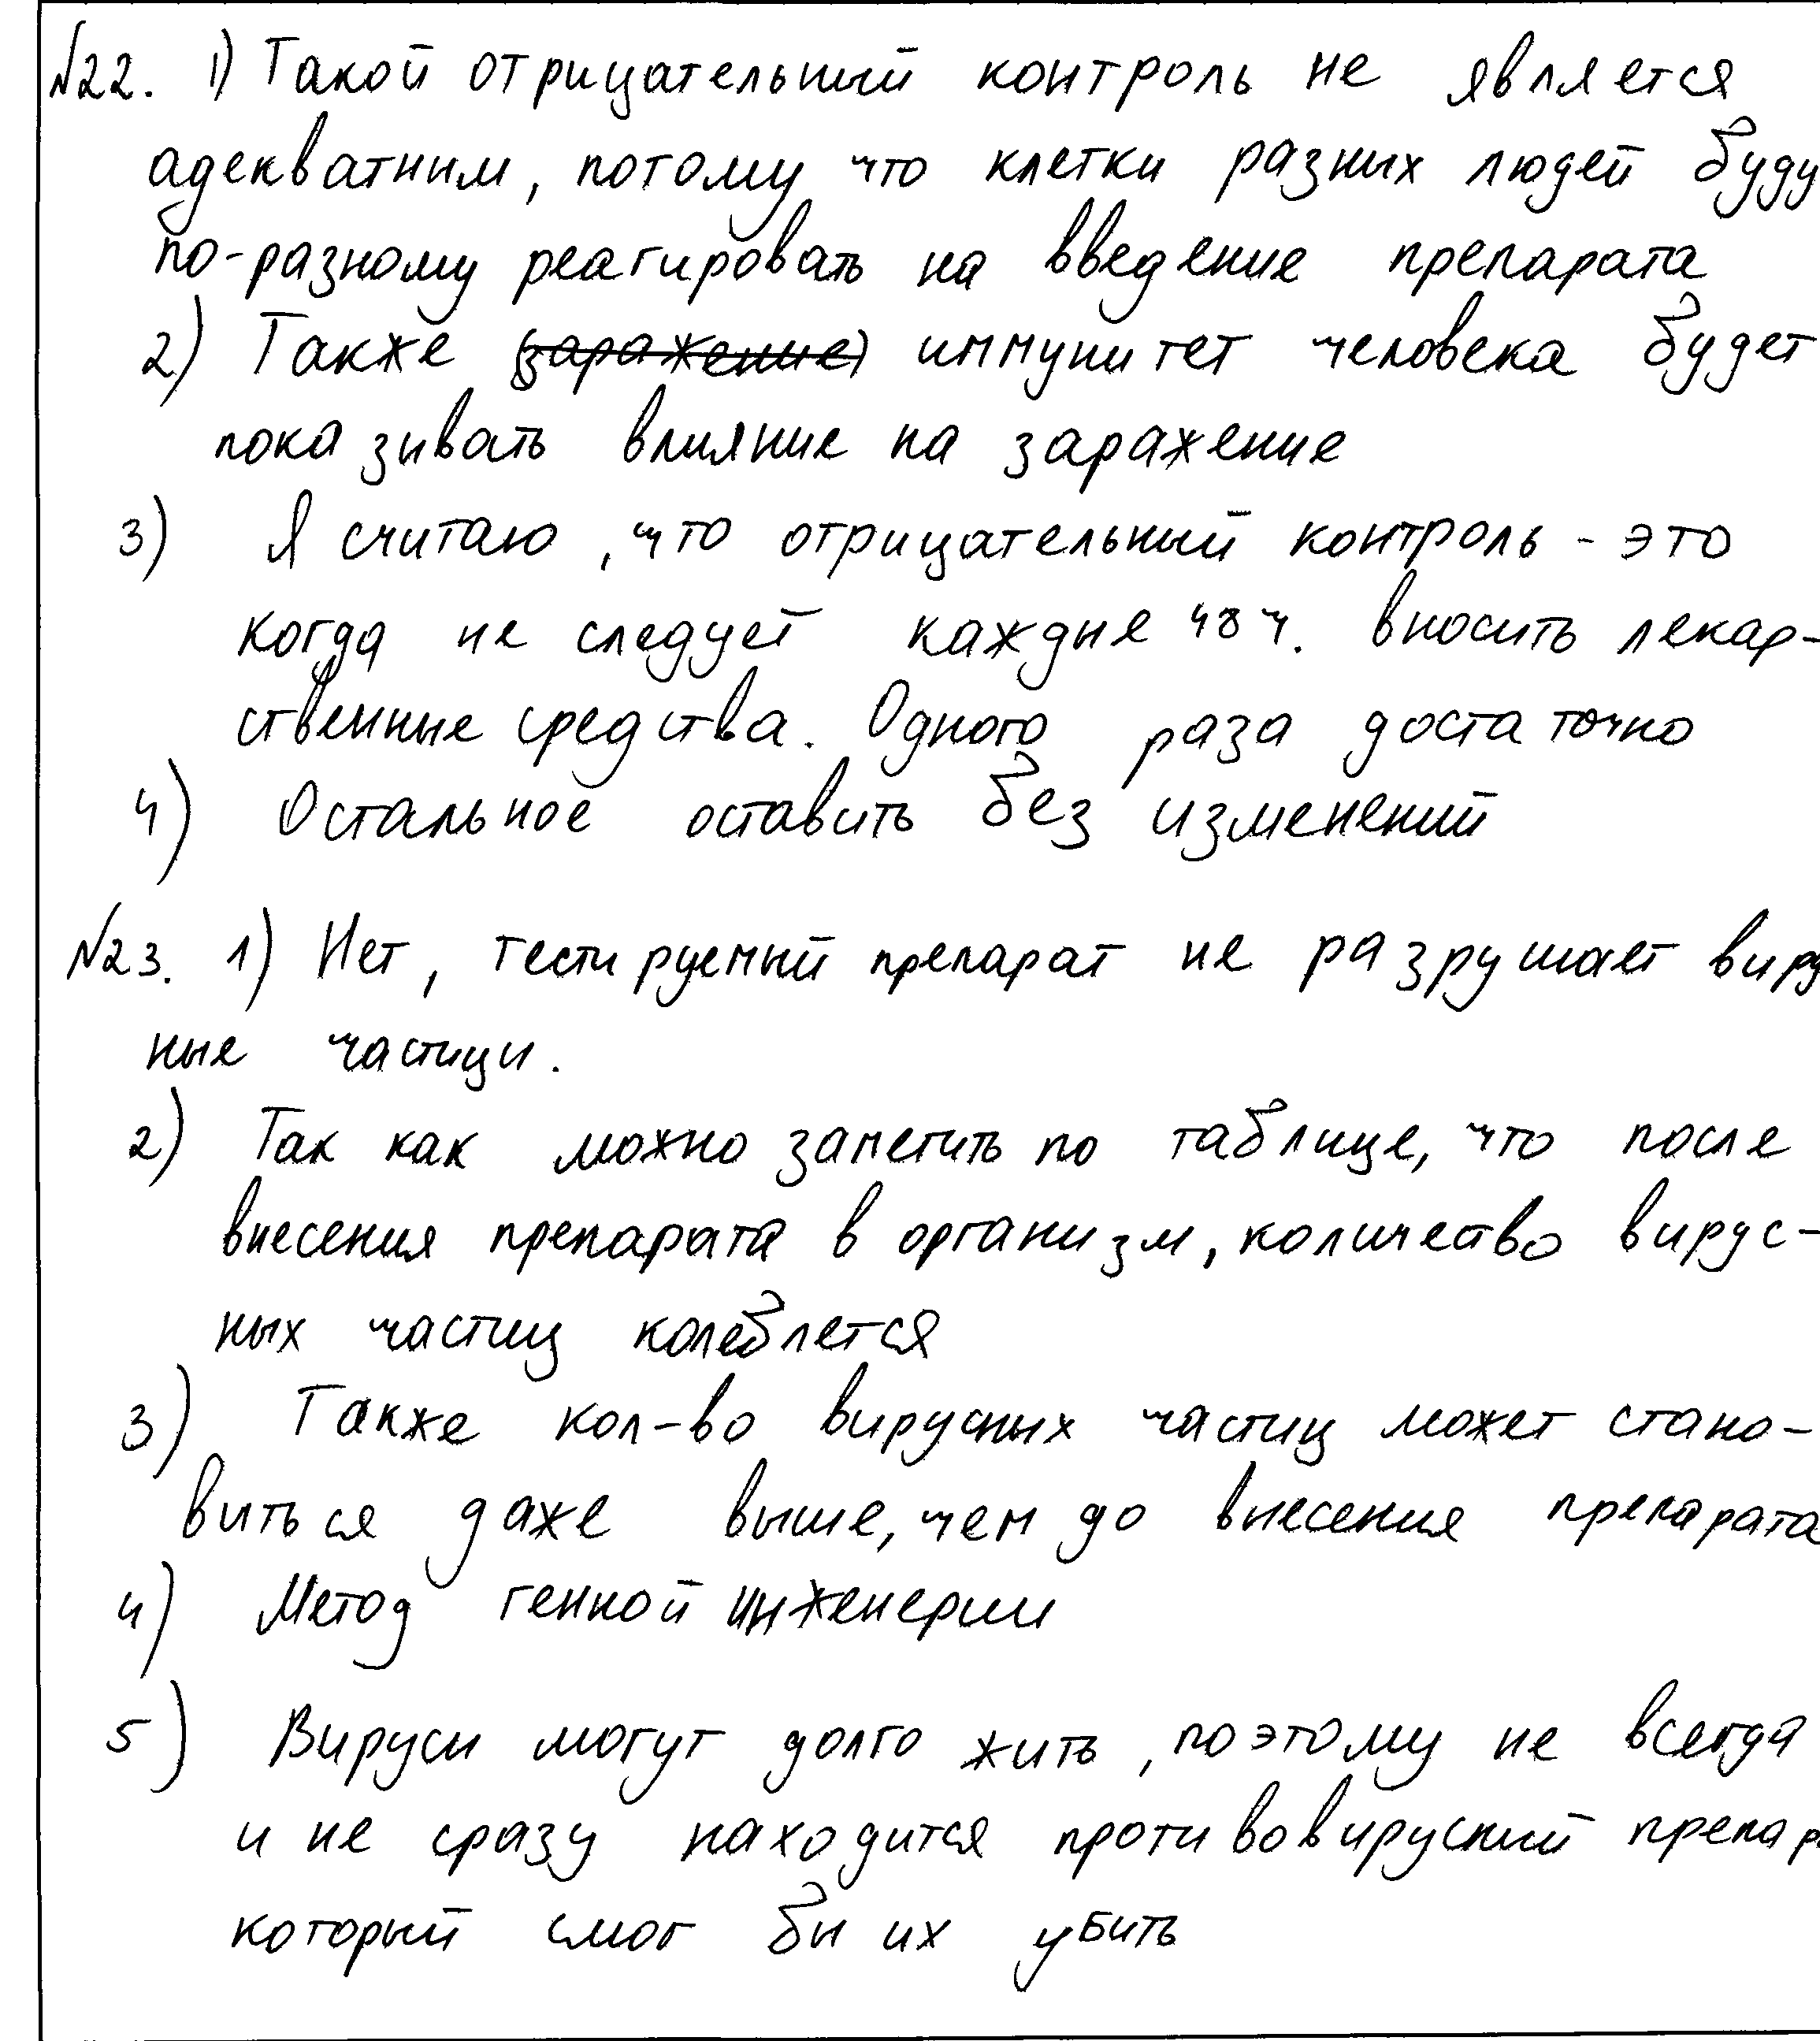 №22. 1) Такой отрицательный контроль не является
адекватным, потому что клетки разных людей буду
по-разному реагировать на введение препарата
2) Также (заражение) иммунитет человека будет
показывать влияние на заражение
3) Я считаю, что отрицательный контроль - это
когда не следует каждые 48 ч. вносить лекар-
ственные средства. Одного раза достаточно
4) Остальное оставить без изменений
№23. 1) Нет, тестируемый препарат не разрушает виру
ные частицы.
2) Так как можно заметить по таблице, что после
внесения препарата в организм, количество вирус-
ных частиц колеблется
3) Также кол-во вирусных частиц может стано-
виться даже выше, чем до внесения препарата
4) Метод генной инженерии
5) Вирусы могут долго жить, поэтому не всегда
и не сразу находится противовирусный препар
который смог бы их убить